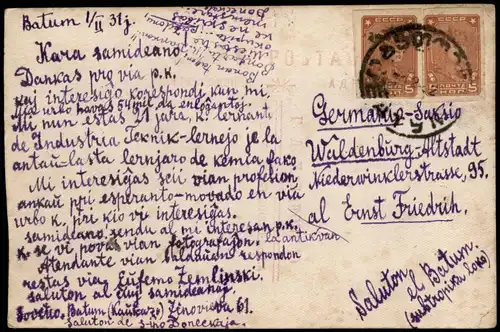 Batum 1/II 31j.
Kara samideano!
Dankas pro via p.k.
kaj interesigo korespondi kun mi.
Mia urbo havas 54 mil da enloĝantoj.
Mi nun estas 21 jara, k. lernanto
de Industria Teknik-lernejo je la
antaŭ-lasta lernjaro de kemia fako
Mi interesiĝas scii vian profesion
ankaŭ pri esperanto-movado en via
urbo k. pri kio vi interesiĝas.
samideano, sendu al mi interesan p.k.
k. se vi povas vian fotografaĵon.
la antikvan
Atendante vian baldaŭan respondon
restas via: Eufemo Zemlinski.
saluton al ĉiuj samideanoj.
Sovetio, Batum (Kaŭkazo) Zinovieva 61.
Saluton de s-ino Doneckaja.
СССР
СССР
5
5
Germanio-Saksio
Waldenburg-Altstadt
Niederwinklerstrasse, 95.
al Ernst Friedrih.
Saluton
el Batum
(subtropika loko)